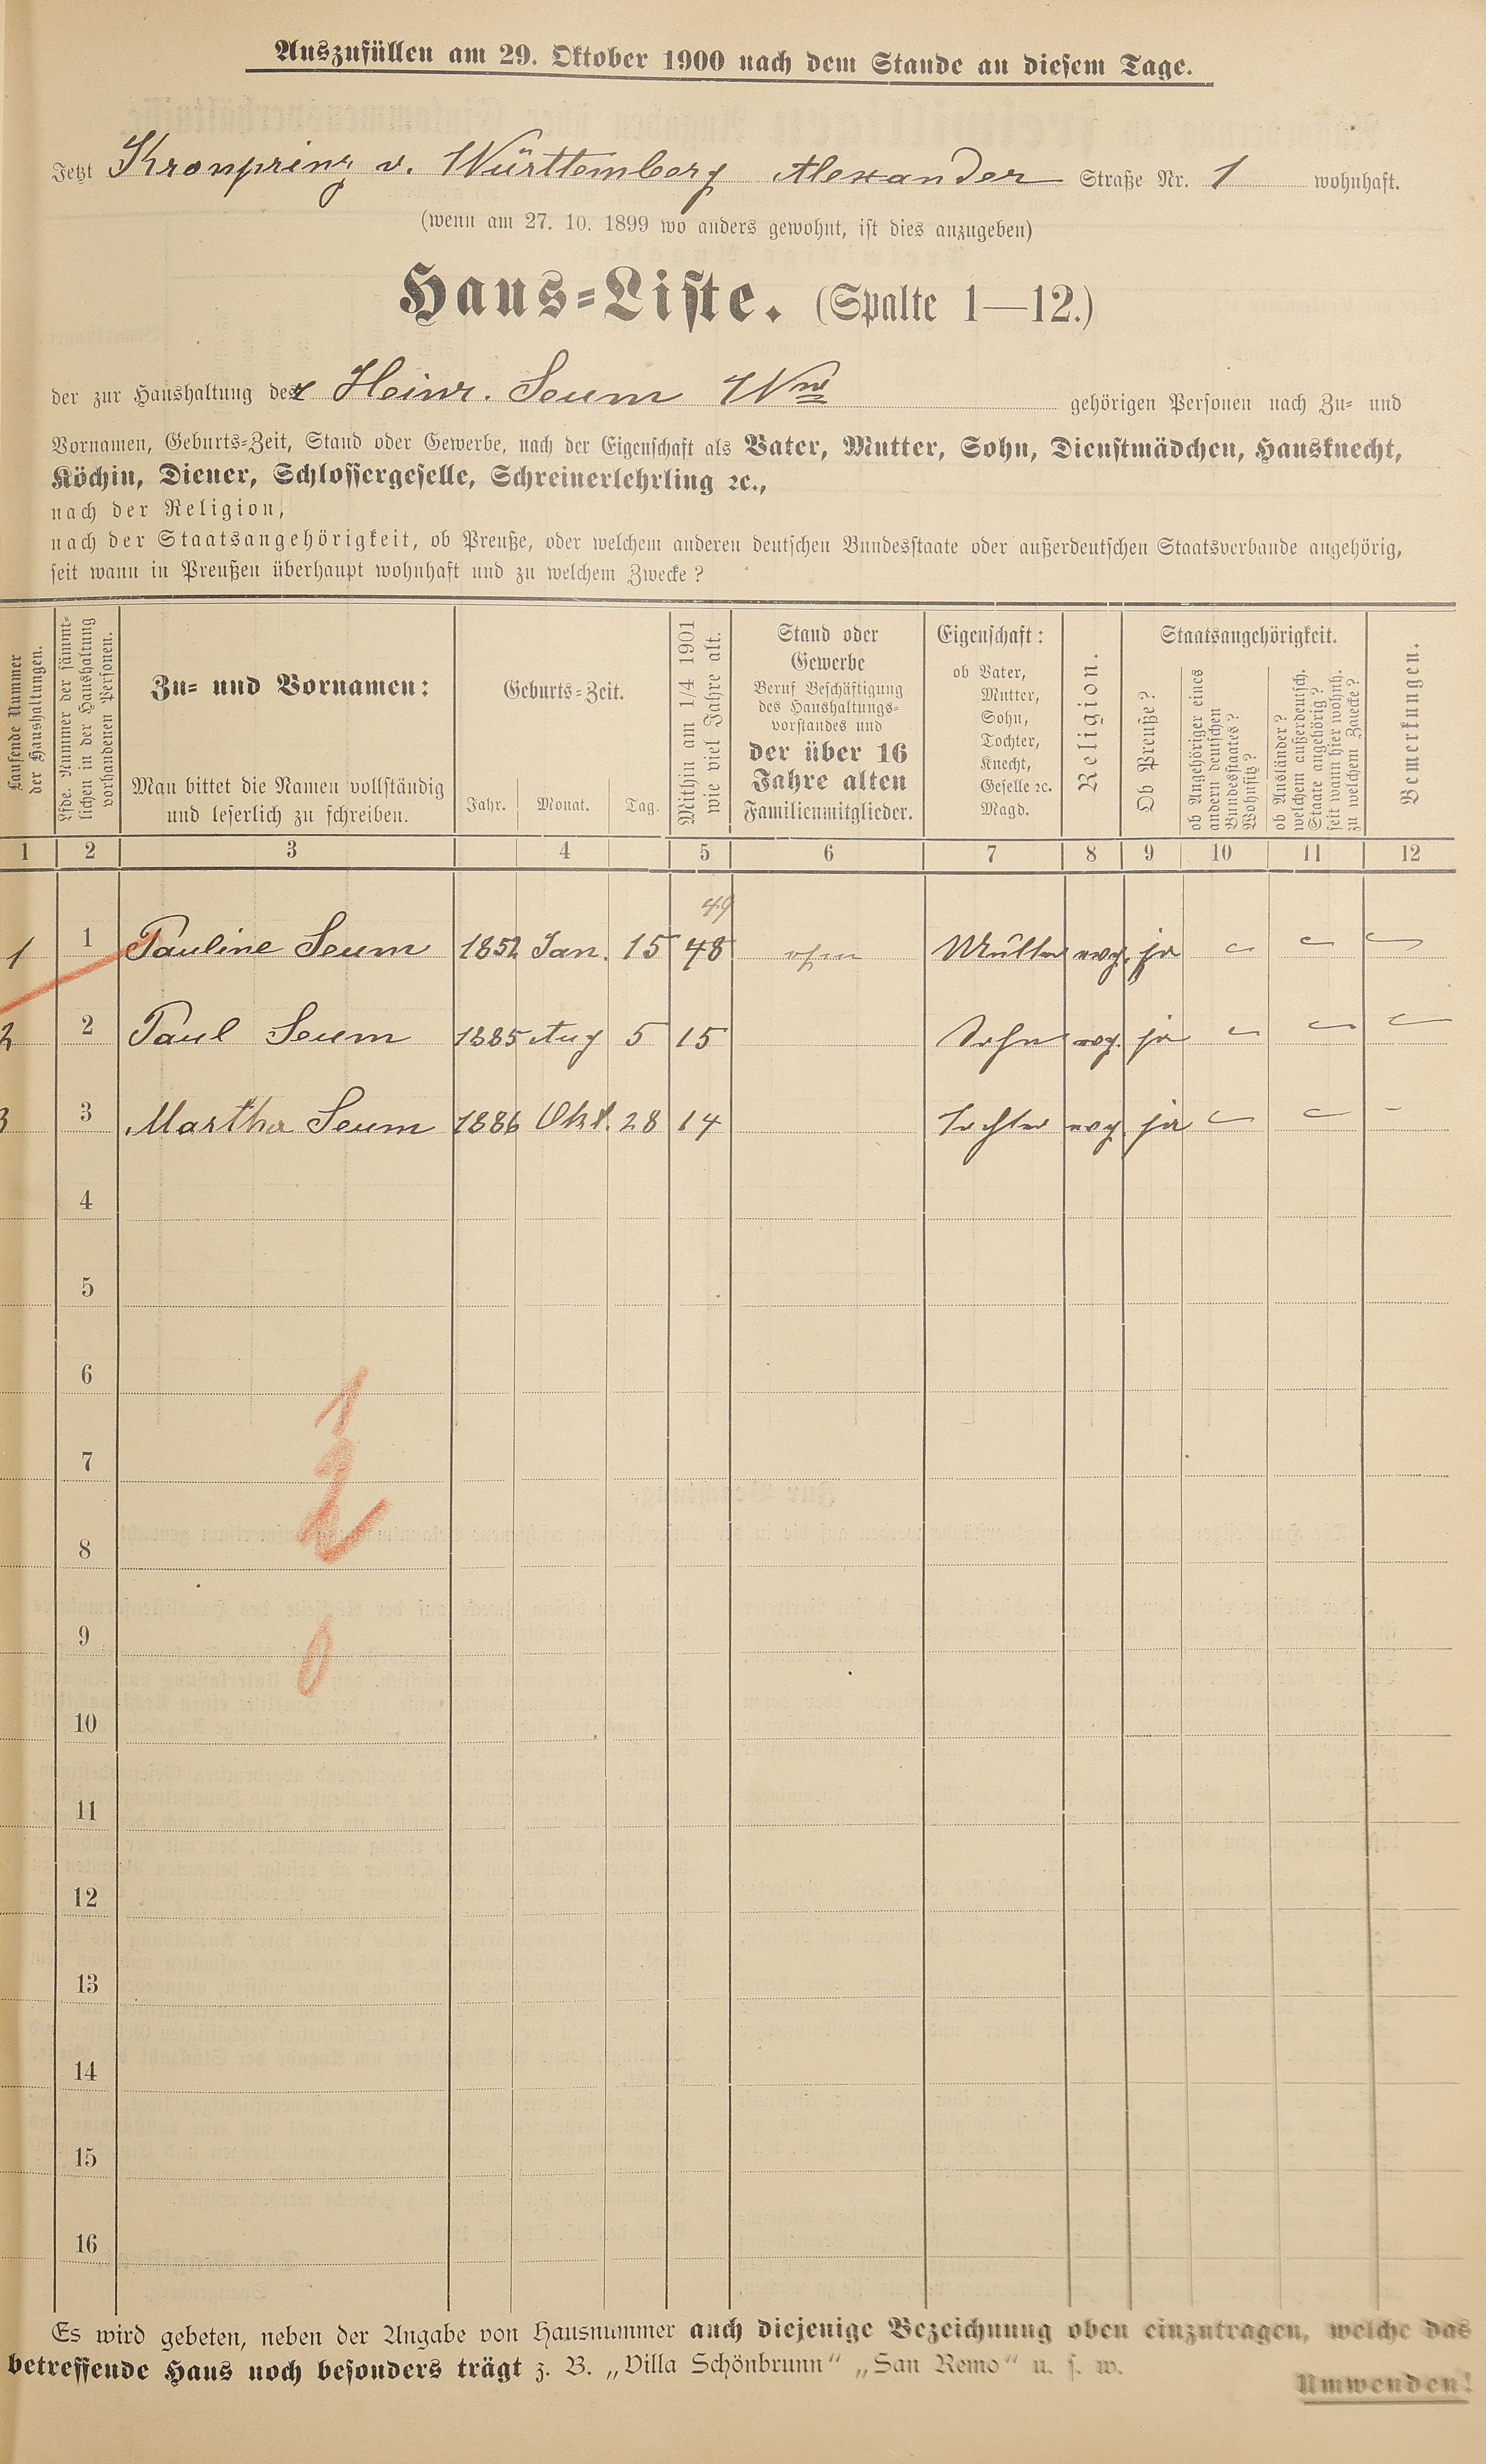 Auszufüllen am 29. Oktober 1900 nach dem Stande an diesem Tage.
Jetzt Kronprinz v. Württemberg Alexander Straße Nr. 1 wohnhaft.
(wenn am 27. 10. 1899 wo anders gewohnt, ist dies anzugeben)
Haus-Liste. (Spalte 1—12.)
der zur Haushaltung der Heinr. Seum Wwe gehörigen Personen nach Zu- und
Vornamen, Geburts-Zeit, Stand oder Gewerbe, nach der Eigenschaft als Vater, Mutter, Sohn, Dienstmädchen, Hausknecht,
Köchin, Diener, Schlossergeselle, Schreinerlehrling ꝛc.,
nach der Religion,
nach der Staatsangehörigkeit, ob Preuße, oder welchem anderen deutschen Bundesstaate oder außerdeutschen Staatsverbande angehörig,
seit wann in Preußen überhaupt wohnhaft und zu welchem Zwecke?
Laufende Nummer
der Haushaltungen.
Lfde. Nummer der sämmt-
lichen in der Haushaltung
vorhandenen Personen.
Zu- und Vornamen:
Man bittet die Namen vollständig
und leserlich zu schreiben.
Geburts-Zeit.
Jahr. Monat. Tag.
Mithin am 1/4 1901
wie viel Jahre alt.
Stand oder
Gewerbe
Beruf Beschäftigung
des Haushaltungs-
vorstandes und
der über 16
Jahre alten
Familienmitglieder.
Eigenschaft:
ob Vater,
Mutter,
Sohn,
Tochter,
Knecht,
Geselle ꝛc.
Magd.
Religion.
Staatsangehörigkeit.
Ob Preuße?
ob Angehöriger eines
andern deutschen
Bundesstaates?
Wohnsitz?
ob Ausländer?
welchem außerdeutsch.
Staate angehörig?
seit wann hier wohnh.
zu welchem Zwecke?
Bemerkungen.
1 2 3 4 5 6 7 8 9 10 11 12
49
1 1 Pauline Seum 1852 Jan. 15 48 ohne Mutter evg. ja
2 2 Paul Seum 1885 Aug 5 15 Sohn evg. ja
3 3 Martha Seum 1886 Okt. 28 14 Tochter evg. ja
4
5
6
1
7
2
8
9
0
10
11
12
13
14
15
16
Es wird gebeten, neben der Angabe von Hausnummer auch diejenige Bezeichnung oben einzutragen, welche das
betreffende Haus noch besonders trägt z. B. „Villa Schönbrunn“ „San Remo“ u. s. w.
Umwenden!